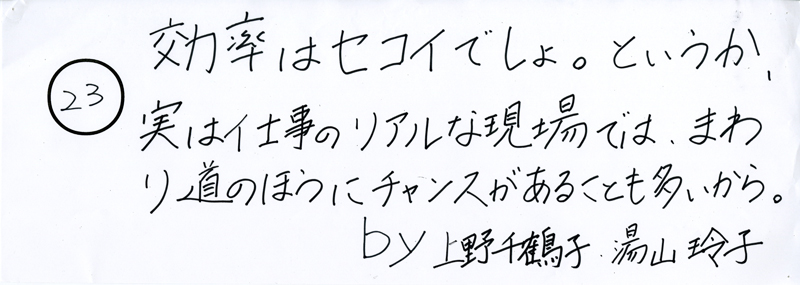 効率はセコイでしょ。というか、
23
実は仕事のリアルな現場では、まわ
り道のほうにチャンスがあることも多いから。
by 上野千鶴子 湯山玲子